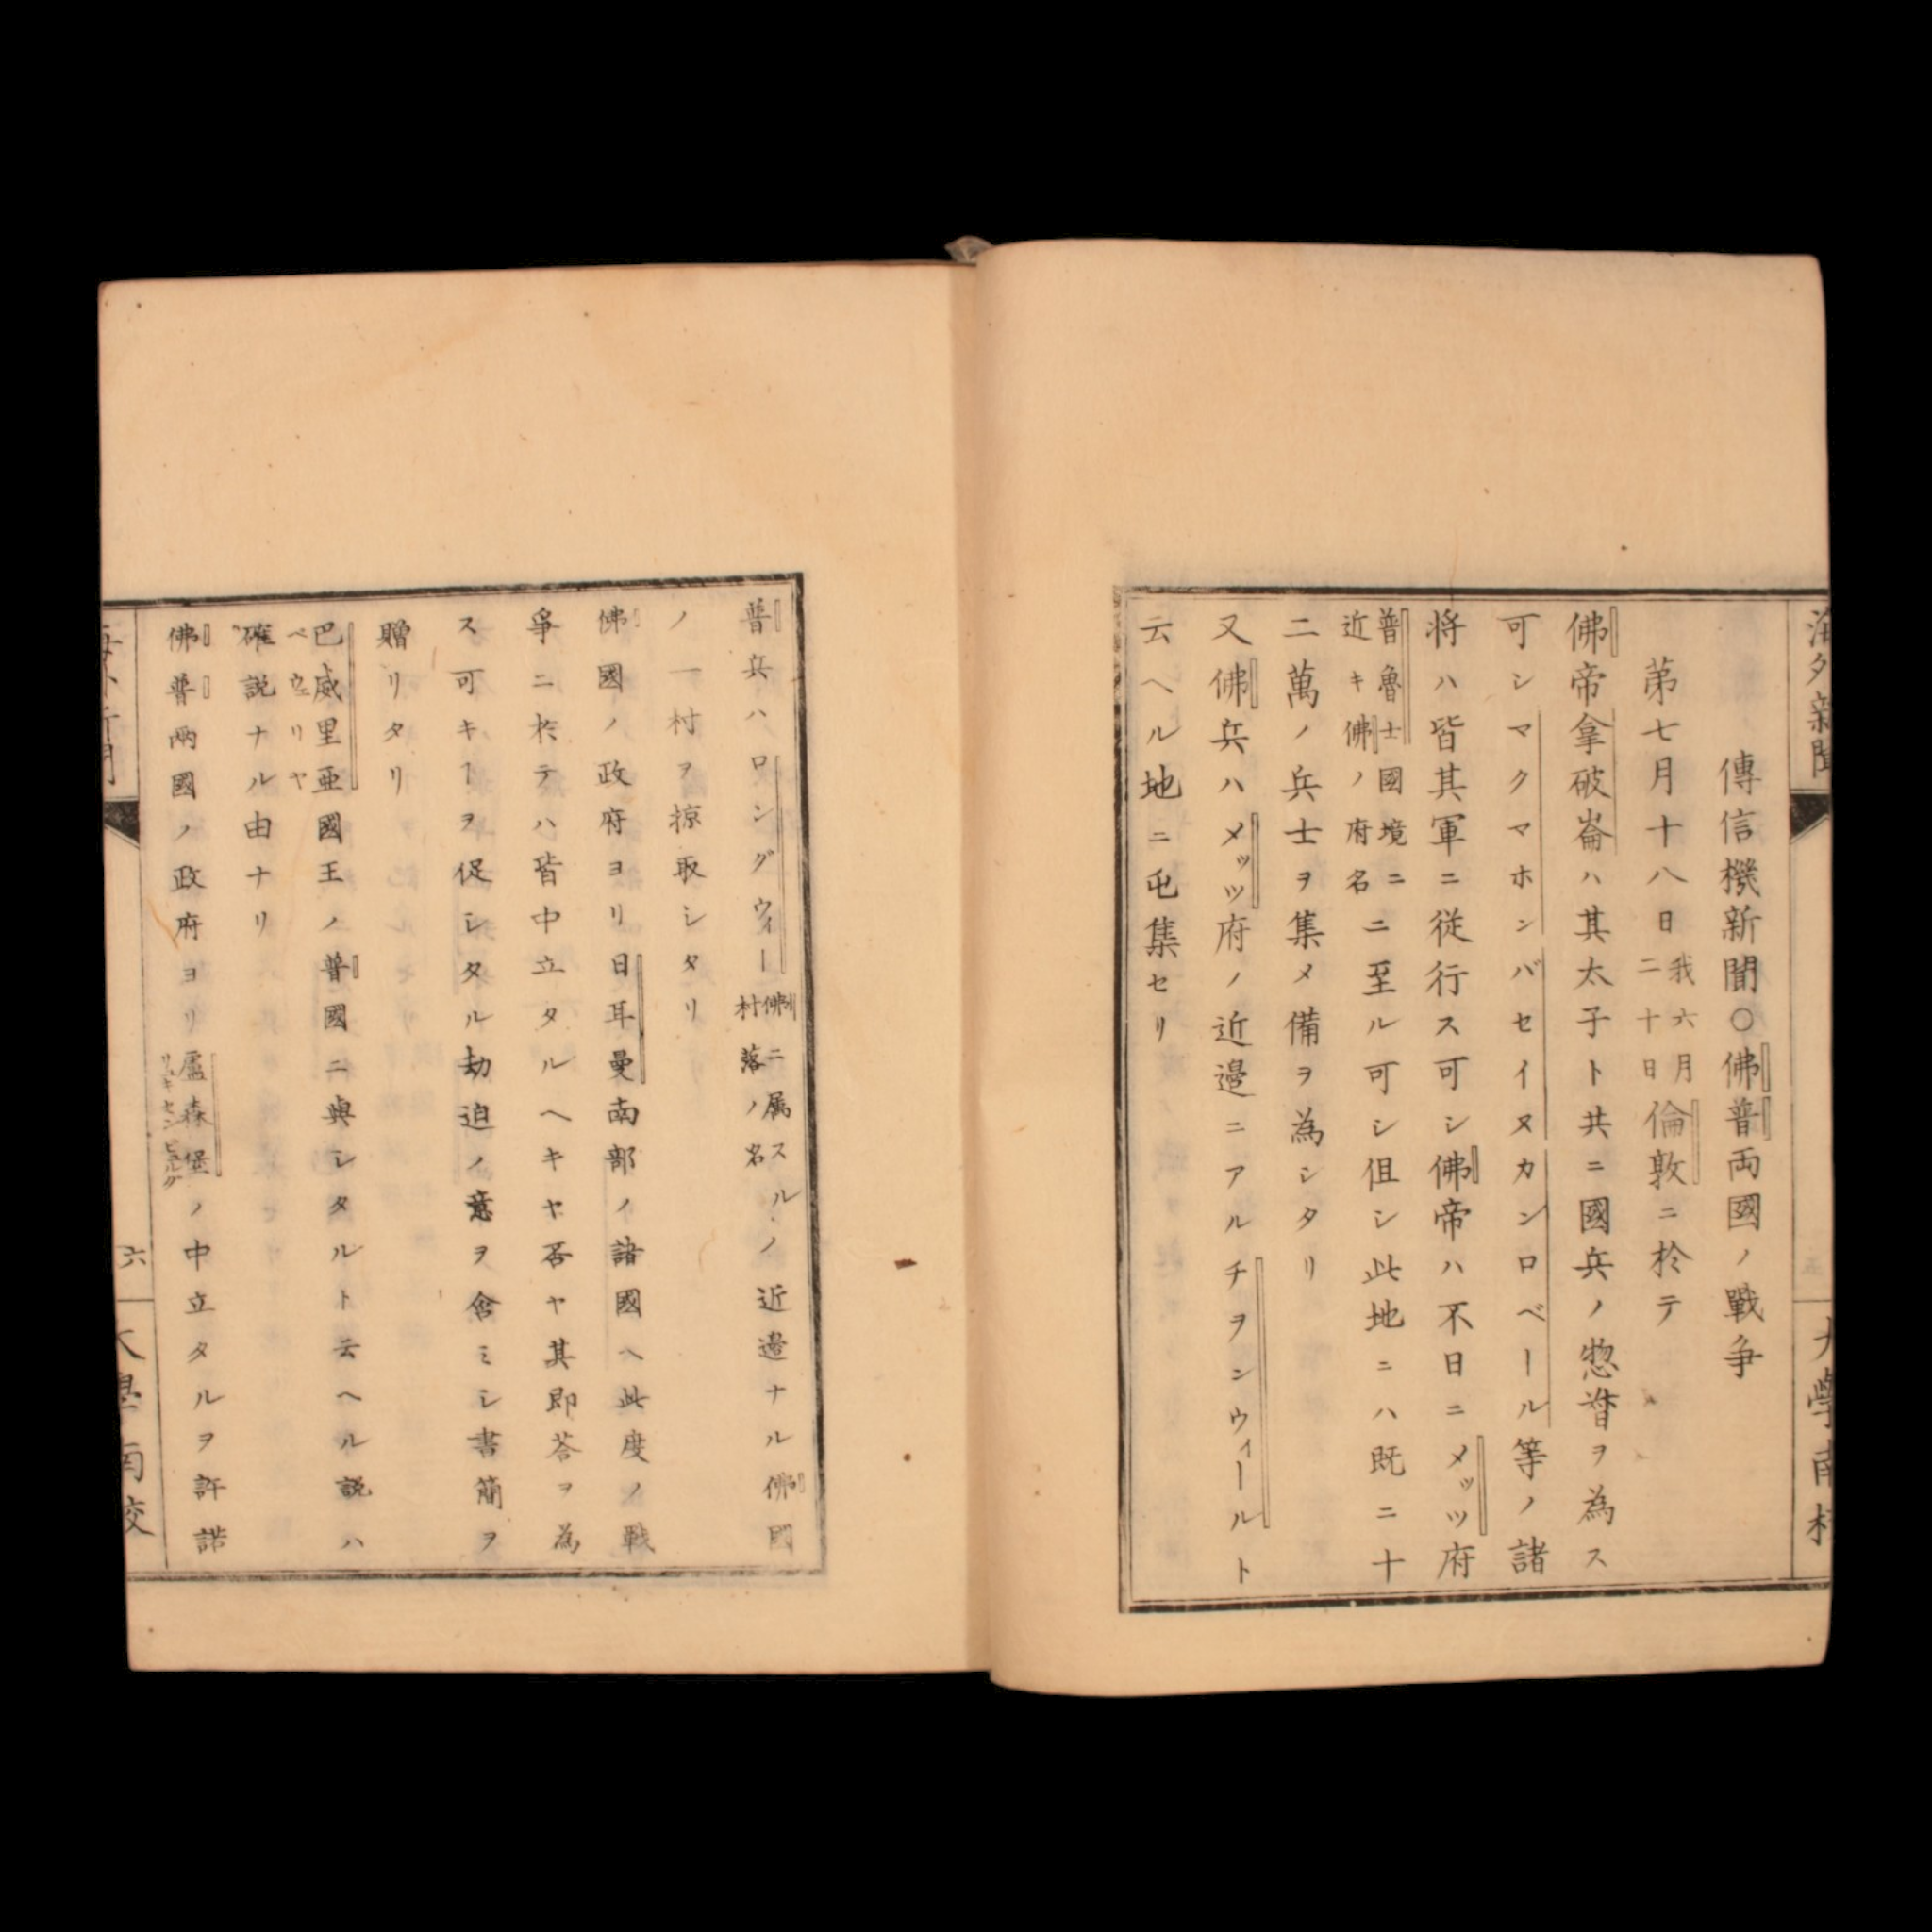 海外新聞
大學南校
傳信機新聞○佛普両國ノ戰争
第七月十八日我六月二十日倫敦ニ於テ
佛帝拿破崙ハ其太子ト共ニ國兵ノ惣督ヲ為ス
可シマクマホンバセイヌカンロベール等ノ諸
将ハ皆其軍ニ従行ス可シ佛帝ハ不日ニメッツ府
普魯士國境ニ近キ佛ノ府名ニ至ル可シ但シ此地ニハ既ニ十
二萬ノ兵士ヲ集メ備ヲ為シタリ
又佛兵ハメッツ府ノ近邉ニアルチヲンウィールト
云ヘル地ニ屯集セリ
普兵ハロングウィー佛ニ属スル村落ノ名ノ近邉ナル佛國
ノ一村ヲ掠取シタリ
佛國ノ政府ヨリ日耳曼南部ノ諸國ヘ此度ノ戰
爭ニ於テハ皆中立タルヘキヤ否ヤ其即荅ヲ為
ス可キヿヲ促シタル劫迫ノ意ヲ含ミシ書簡ヲ
贈リタリ
巴威里亜國王ノ普國ニ與シタルト云ヘル説ハ
ベウェリヤ
確説ナル由ナリ
佛普両國ノ政府ヨリ盧森堡ノ中立タルヲ許諾
リュキセンビュルグ
六
大學南校